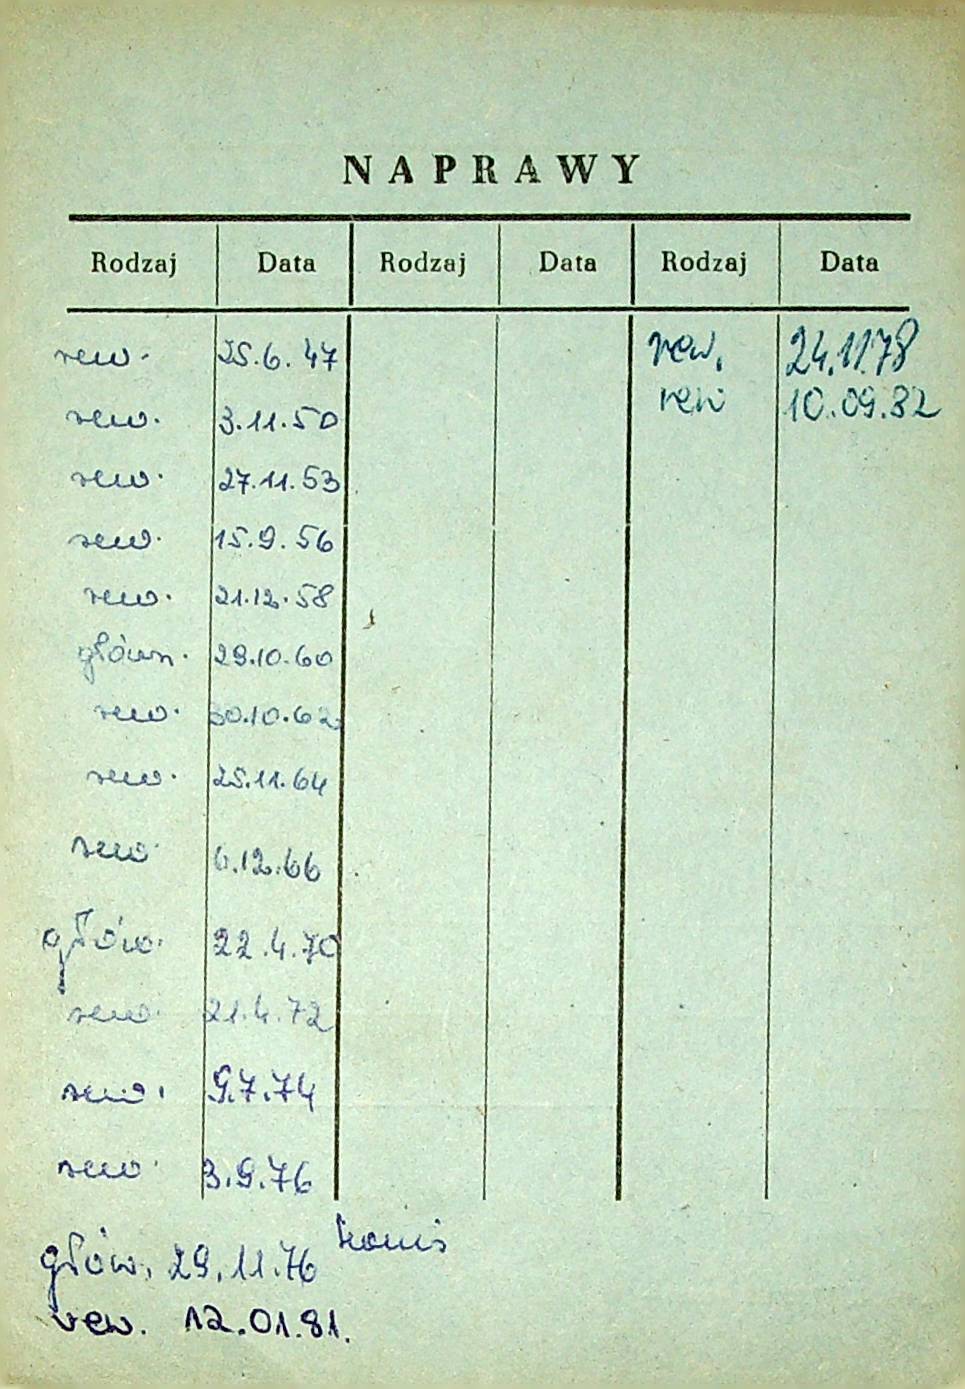 NAPRAWY
Rodzaj Data Rodzaj Data Rodzaj Data
rew. 25.6.47 rew. 24.11.78
rew 10.09.82
rew. 3.11.50
rew. 27.11.53
rew. 15.9.56
rew. 21.12.58
główn. 29.10.60
rew. 30.10.62
rew. 25.11.64
rew. 6.12.66
głów. 22.4.70
rew. 21.4.72
rew. 9.7.74
rew. 3.9.76
głów. 29.11.76
rew. 12.01.81.